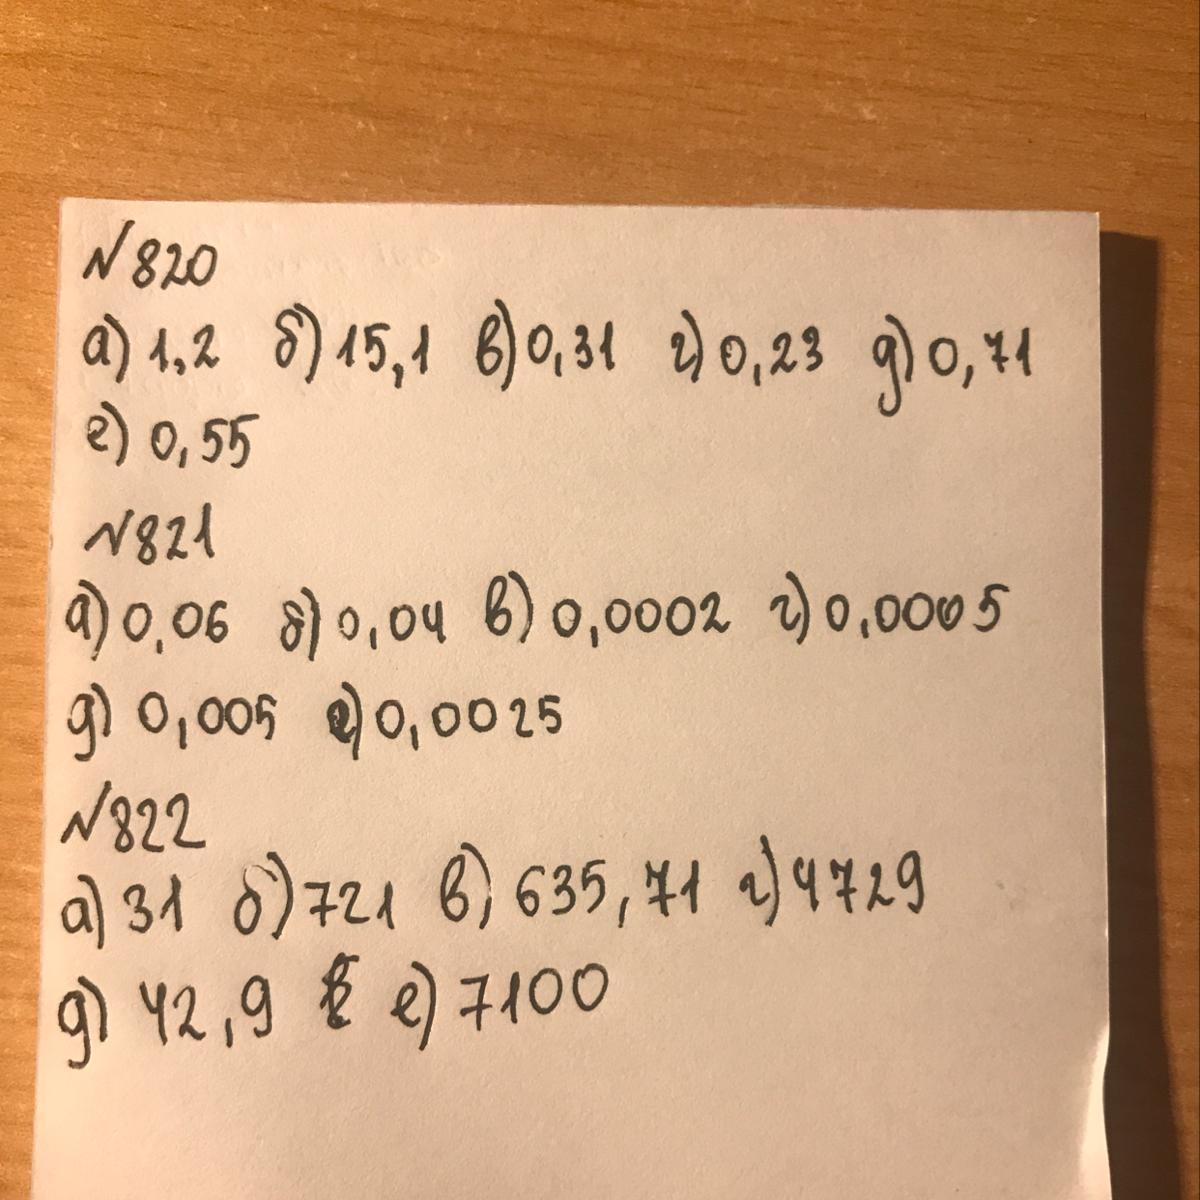 №820
а) 1,2 б) 15,1 в) 0,31 г) 0,23 д) 0,71
е) 0,55
№821
а) 0,06 б) 0,04 в) 0,0002 г) 0,0005
д) 0,005 е) 0,0025
№822
а) 31 б) 721 в) 635,71 г) 4729
д) 42,9 е) 7100